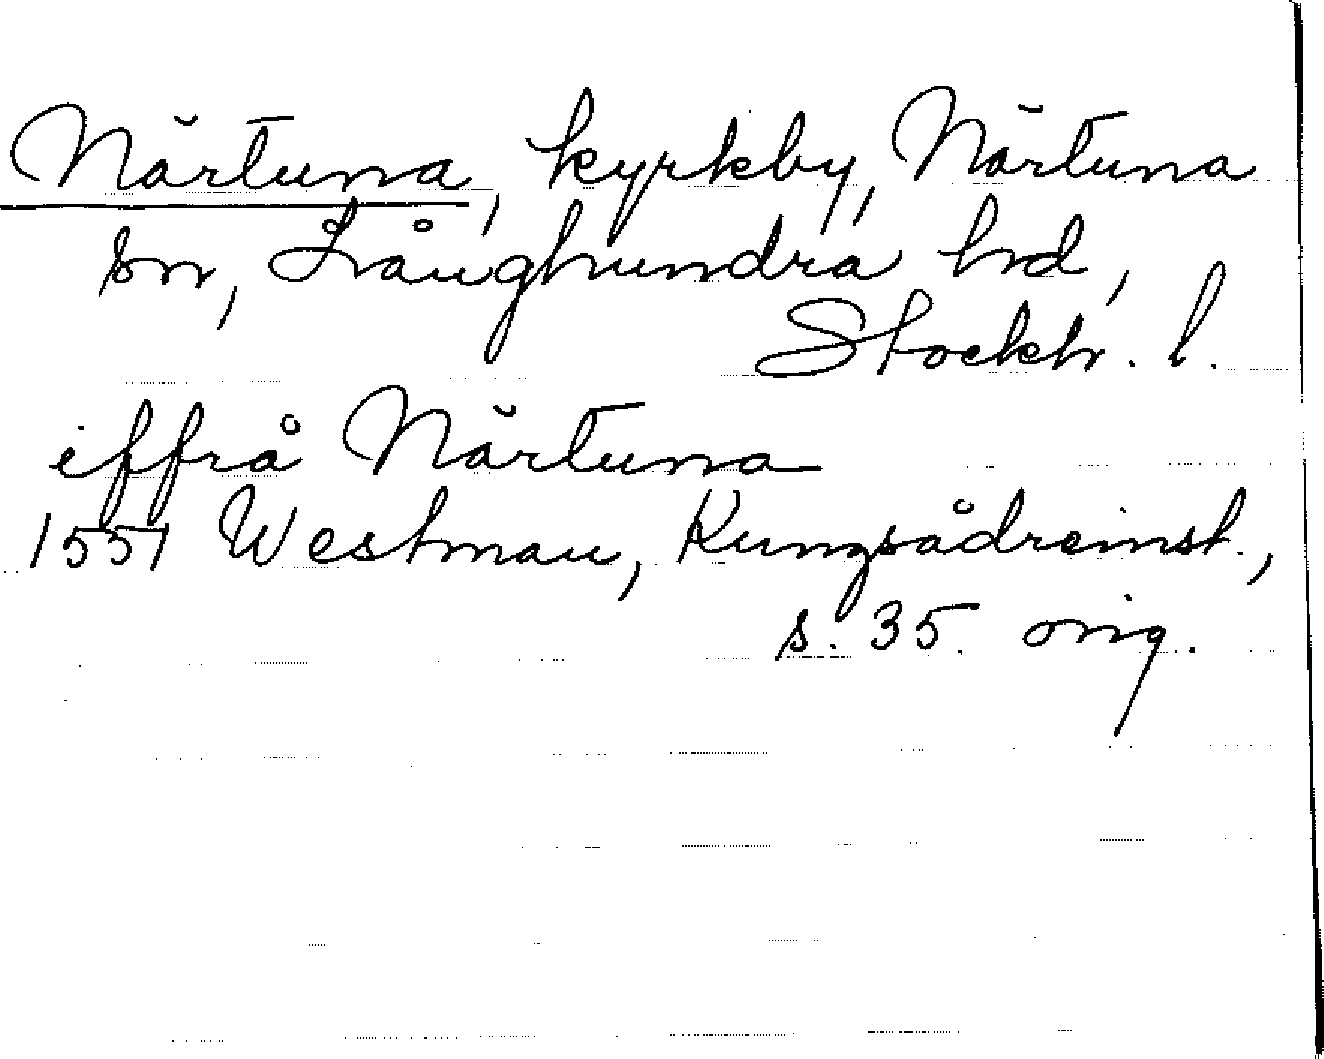 Närtuna, kyrkby, Närtuna
sn, Långhundra hrd,
Stockh. l.
iffrå Närtuna
1551 Westman, Kungsådreinst.,
s. 35. orig.